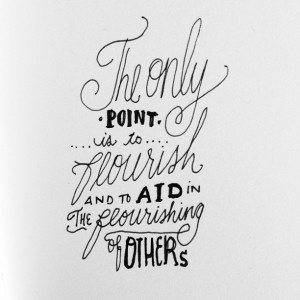 The only
· POINT ·
.... is to ....
flourish
AND TO AID in
THE flourishing
of OTHERS